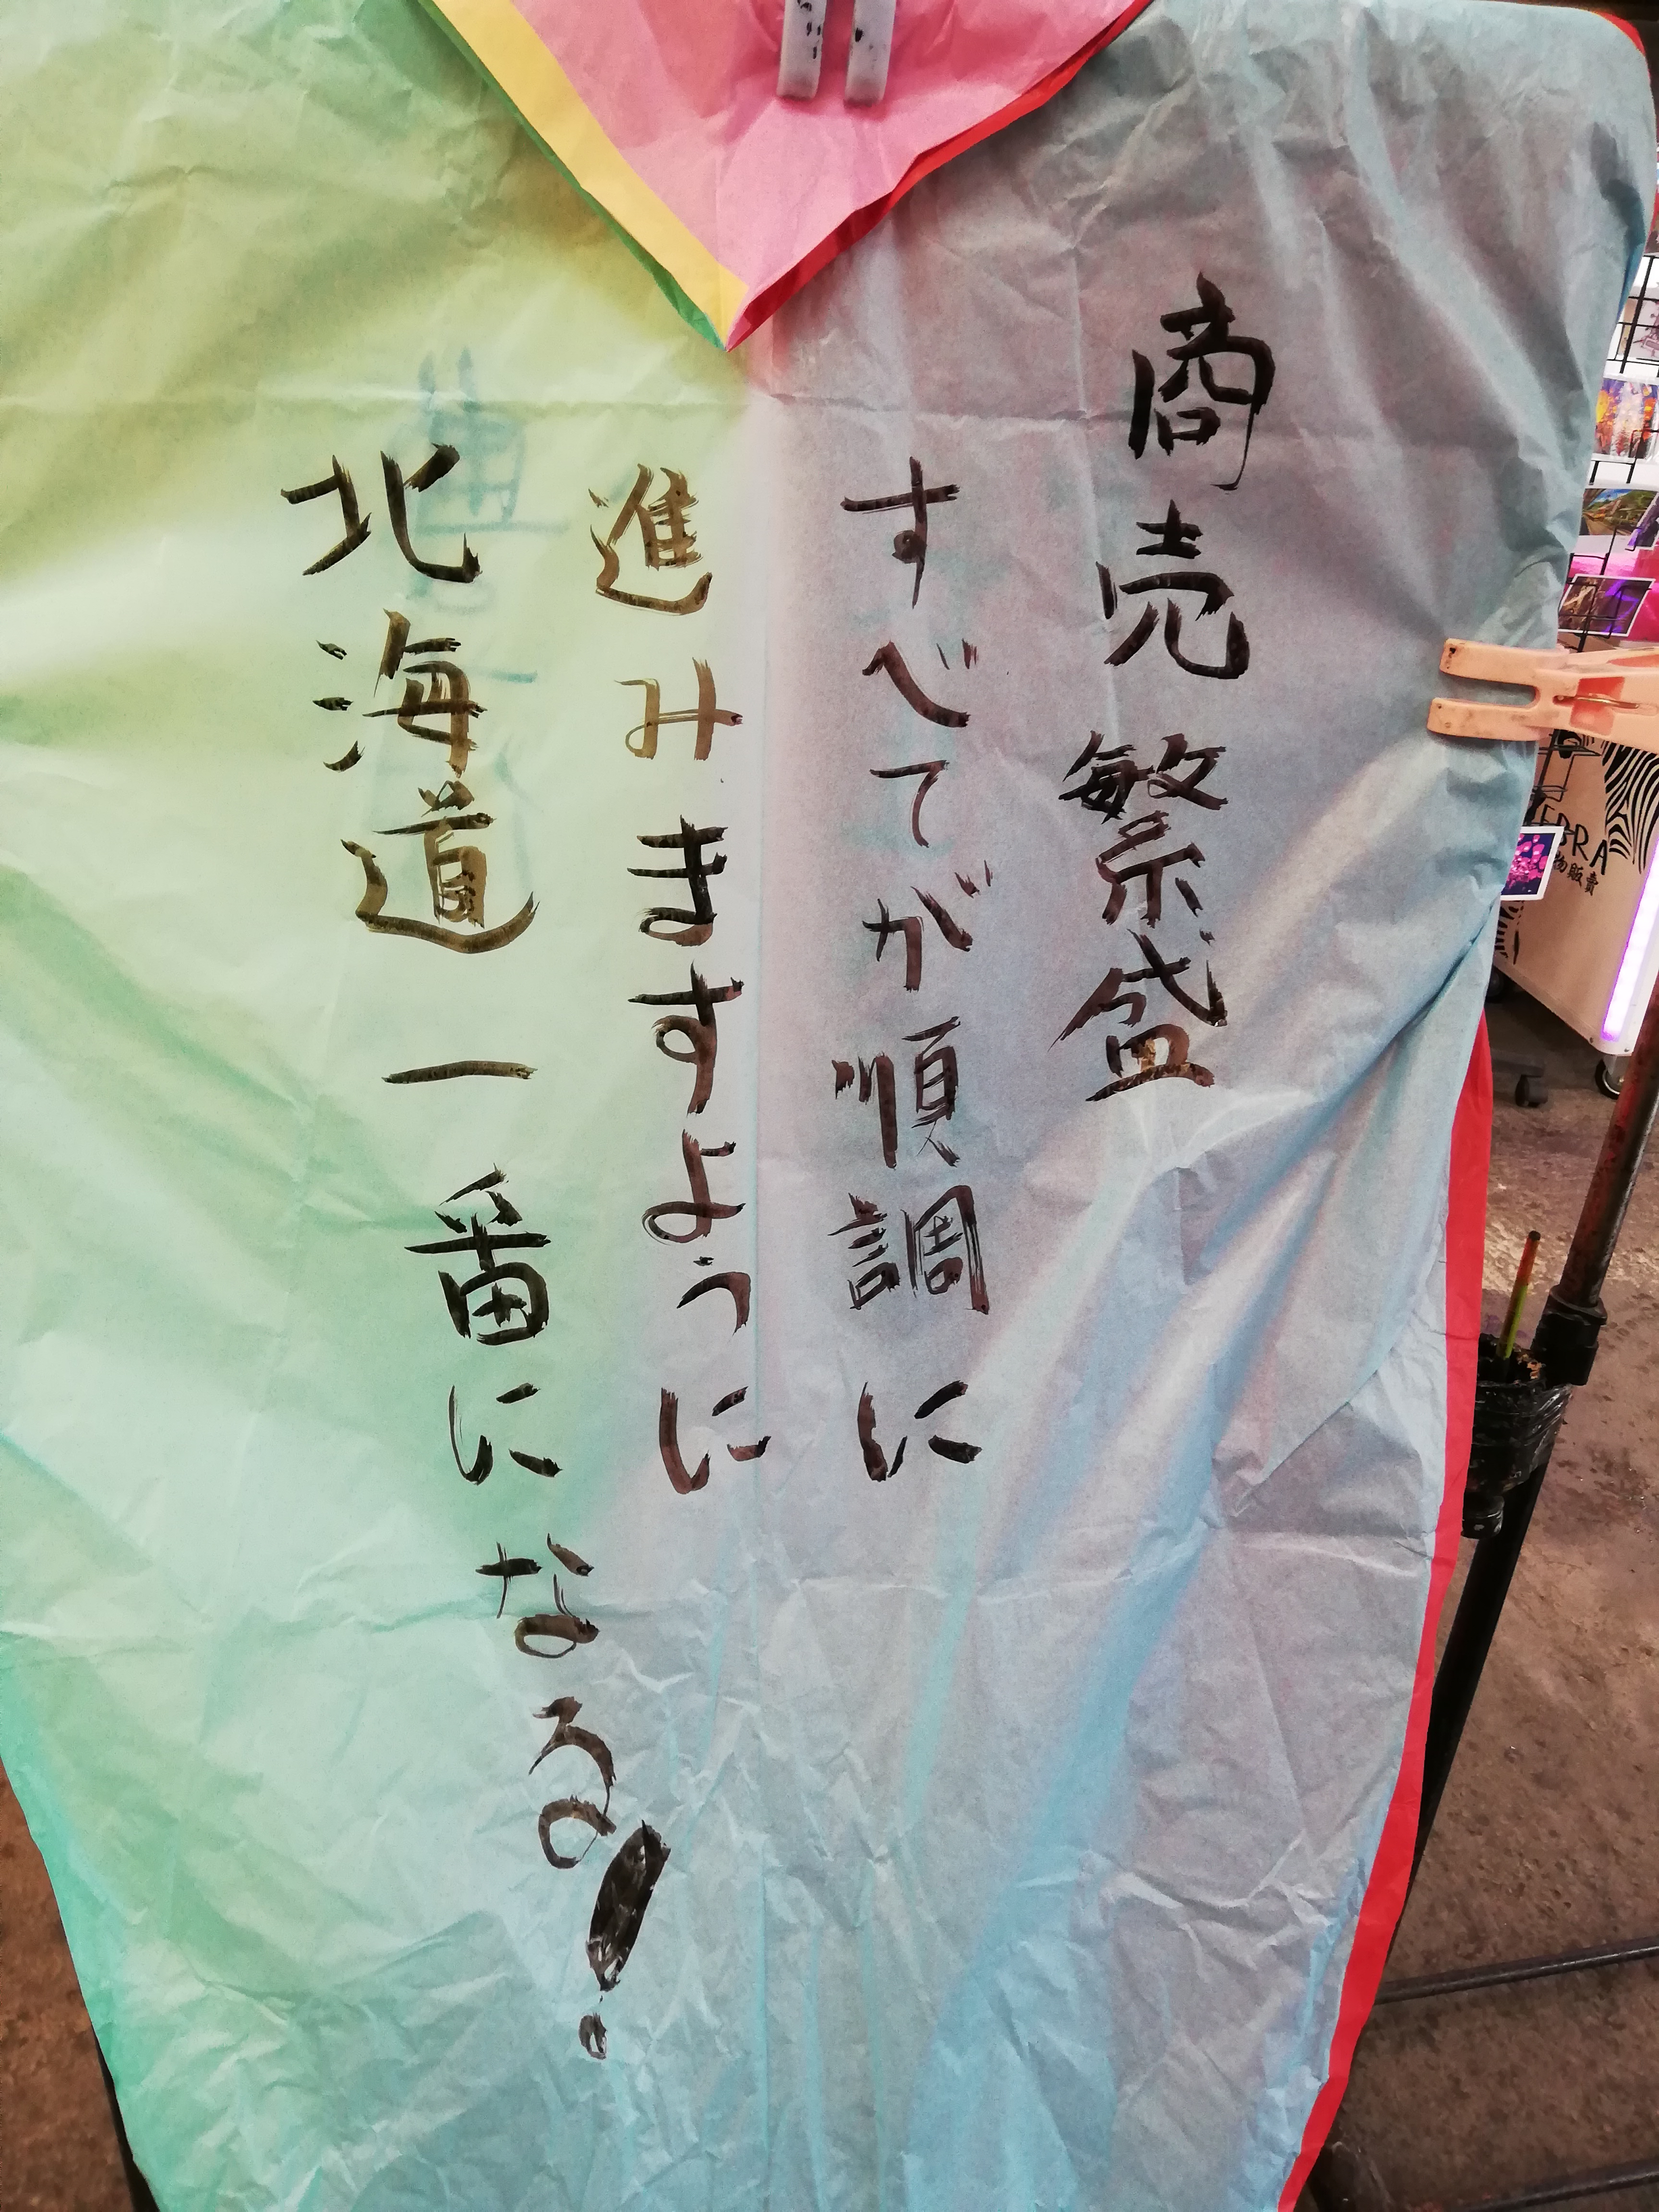 商売繁盛
すべてが順調に
進みきすように
北海道一番になる!
物販賣